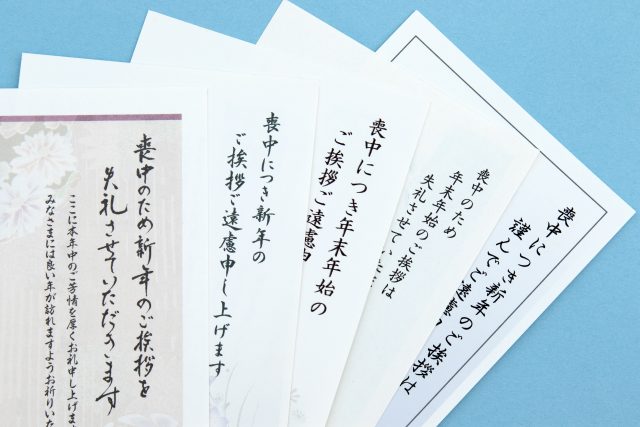 喪中のため新年のご挨拶を
失礼させていただきます
ここに本年中のご芳情を厚くお礼申し上げま
みなさまには良い年が訪れますようお祈りいた
喪中につき新年の
ご挨拶ご遠慮申し上げます
喪中につき年末年始の
ご挨拶ご遠慮申
喪中のため
年末年始のご挨拶は
失礼させていた
喪中につき新年のご挨拶は
謹んでご遠慮